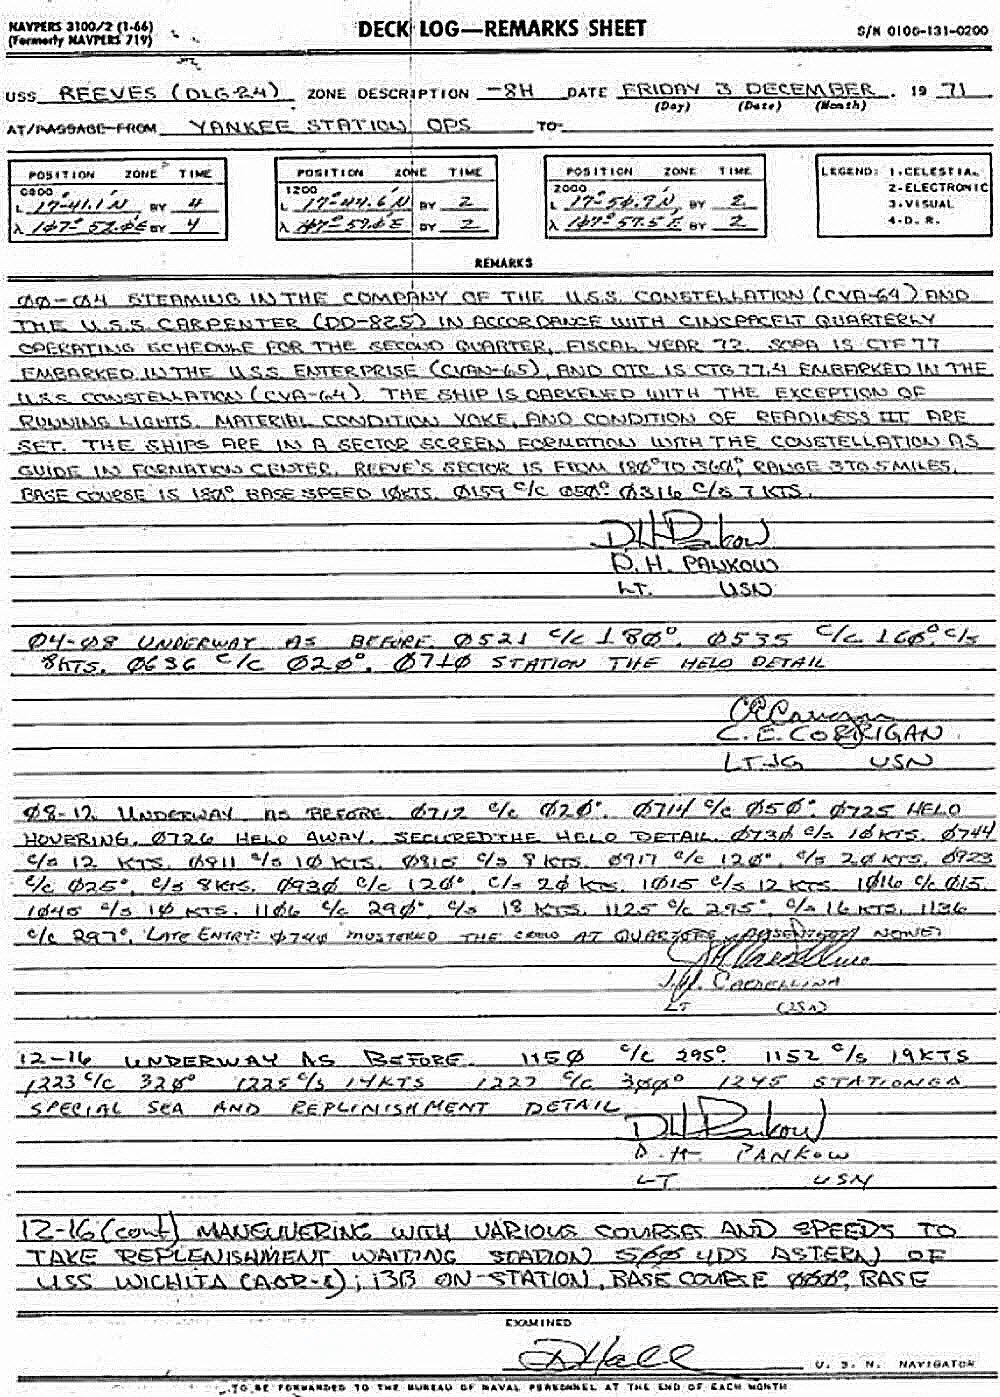 NAVPERS 3100/2 (1-66)
(Formerly NAVPERS 719)
DECK LOG—REMARKS SHEET
S/N 0106-131-0200
USS REEVES (DLG-24) ZONE DESCRIPTION -8H DATE FRIDAY 3 DECEMBER, 19 71
(Day) (Date) (Month)
AT/PASSAGE FROM YANKEE STATION OPS TO
POSITION ZONE TIME
0800
L 17-41.1'N BY 4
λ 107° 52.0'E BY 4
POSITION ZONE TIME
1200
L 17°-44.6'N BY 2
λ 107°-57.0'E BY 2
POSITION ZONE TIME
2000
L 17°-50.7'N BY 2
λ 107°-57.5'E BY 2
LEGEND: 1-CELESTIAL
2-ELECTRONIC
3-VISUAL
4-D. R.
REMARKS
ØØ-Ø4 STEAMING IN THE COMPANY OF THE U.S.S. CONSTELLATION (CVA-64) AND
THE U.S.S CARPENTER (DD-825) IN ACCORDANCE WITH CINCPACFLT QUARTERLY
OPERATING SCHEDULE FOR THE SECOND QUARTER, FISCAL YEAR 72. SOPA IS CTF 77
EMBARKED IN THE U.S.S. ENTERPRISE (CVAN-65), AND OTC IS CTG 77.4 EMBARKED IN THE
U.S.S CONSTELLATION (CVA-64). THE SHIP IS DARKENED WITH THE EXCEPTION OF
RUNNING LIGHTS. MATERIAL CONDITION YOKE, AND CONDITION OF READINESS III ARE
SET. THE SHIPS ARE IN A SECTOR SCREEN FORMATION WITH THE CONSTELLATION AS
GUIDE IN FORMATION CENTER. REEVE'S SECTOR IS FROM 180° TO 360°, RANGE 3 TO 5 MILES.
BASE COURSE IS 180° BASE SPEED 10KTS. Ø159 c/c Ø5Ø° Ø316 c/s 7 KTS.
D. H. PANKOW
LT. USN
Ø4-Ø8 UNDERWAY AS BEFORE. Ø521 c/c 180°. Ø535 c/c 160° c/s
8KTS. Ø636 c/c Ø2Ø°. Ø71Ø STATION THE HELO DETAIL
C. E. CORRIGAN
LTJG USN
Ø8-12 UNDERWAY AS BEFORE. Ø712 c/c Ø2Ø°. Ø714 c/c Ø5Ø°. Ø725 HELO
HOVERING. Ø726 HELO AWAY. SECURED THE HELO DETAIL. Ø73Ø c/s 1Ø KTS. Ø744
c/s 12 KTS. Ø811 c/s 1Ø KTS. Ø815 c/s 8 KTS. Ø917 c/c 12Ø°, c/s 2Ø KTS. Ø923
c/c Ø25°, c/s 8KTS. Ø93Ø c/c 12Ø°, c/s 2Ø KTS. 1Ø15 c/s 12 KTS. 1Ø16 c/c Ø15.
1Ø45 c/s 1Ø KTS. 11Ø6 c/c 29Ø°, c/s 18 KTS. 1125 c/c 295°, c/s 16 KTS. 1136
c/c 297°. LATE ENTRY: Ø74Ø MUSTERED THE CREW AT QUARTERS, ABSENTEES NONE.
LT USN
12-16 UNDERWAY AS BEFORE. 115Ø c/c 295°. 1152 c/s 19KTS
1223 c/c 32Ø° 1225 c/s 14KTS 1227 c/c 3ØØ° 1245 STATIONED
SPECIAL SEA AND REPLINISHMENT DETAIL
D. H. PANKOW
LT USN
12-16 (cont) MANEUVERING WITH VARIOUS COURSES AND SPEEDS TO
TAKE REPLENISHMENT WAITING STATION 5ØØ YDS ASTERN OF
USS WICHITA (AOR-1); 13 ON-STATION, BASE COURSE ØØØ°, BASE
EXAMINED
D Hall
U. S. N. NAVIGATOR
TO BE FORWARDED TO THE BUREAU OF NAVAL PERSONNEL AT THE END OF EACH MONTH